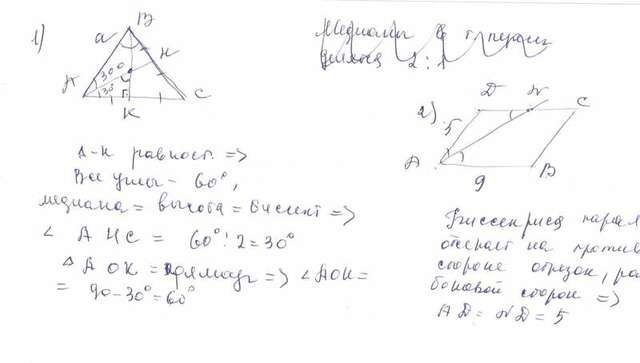 1)
B
a
H
30°
30°
A
K
C
Δ-к равност. =>
Все углы - 60°,
медиана = высота = биссект =>
∠ А Н С = 60° : 2 = 30°
Δ А О К = прямоуг => ∠ АОК =
= 90 - 30° = 60°
Медианы в т. пересеч
делятся 2 : 1
2)
D
N
C
5
A
9
B
Биссектриса парал
отсекает на против
стороне отрезок, ра
боковой сторон =>
AD = ND = 5